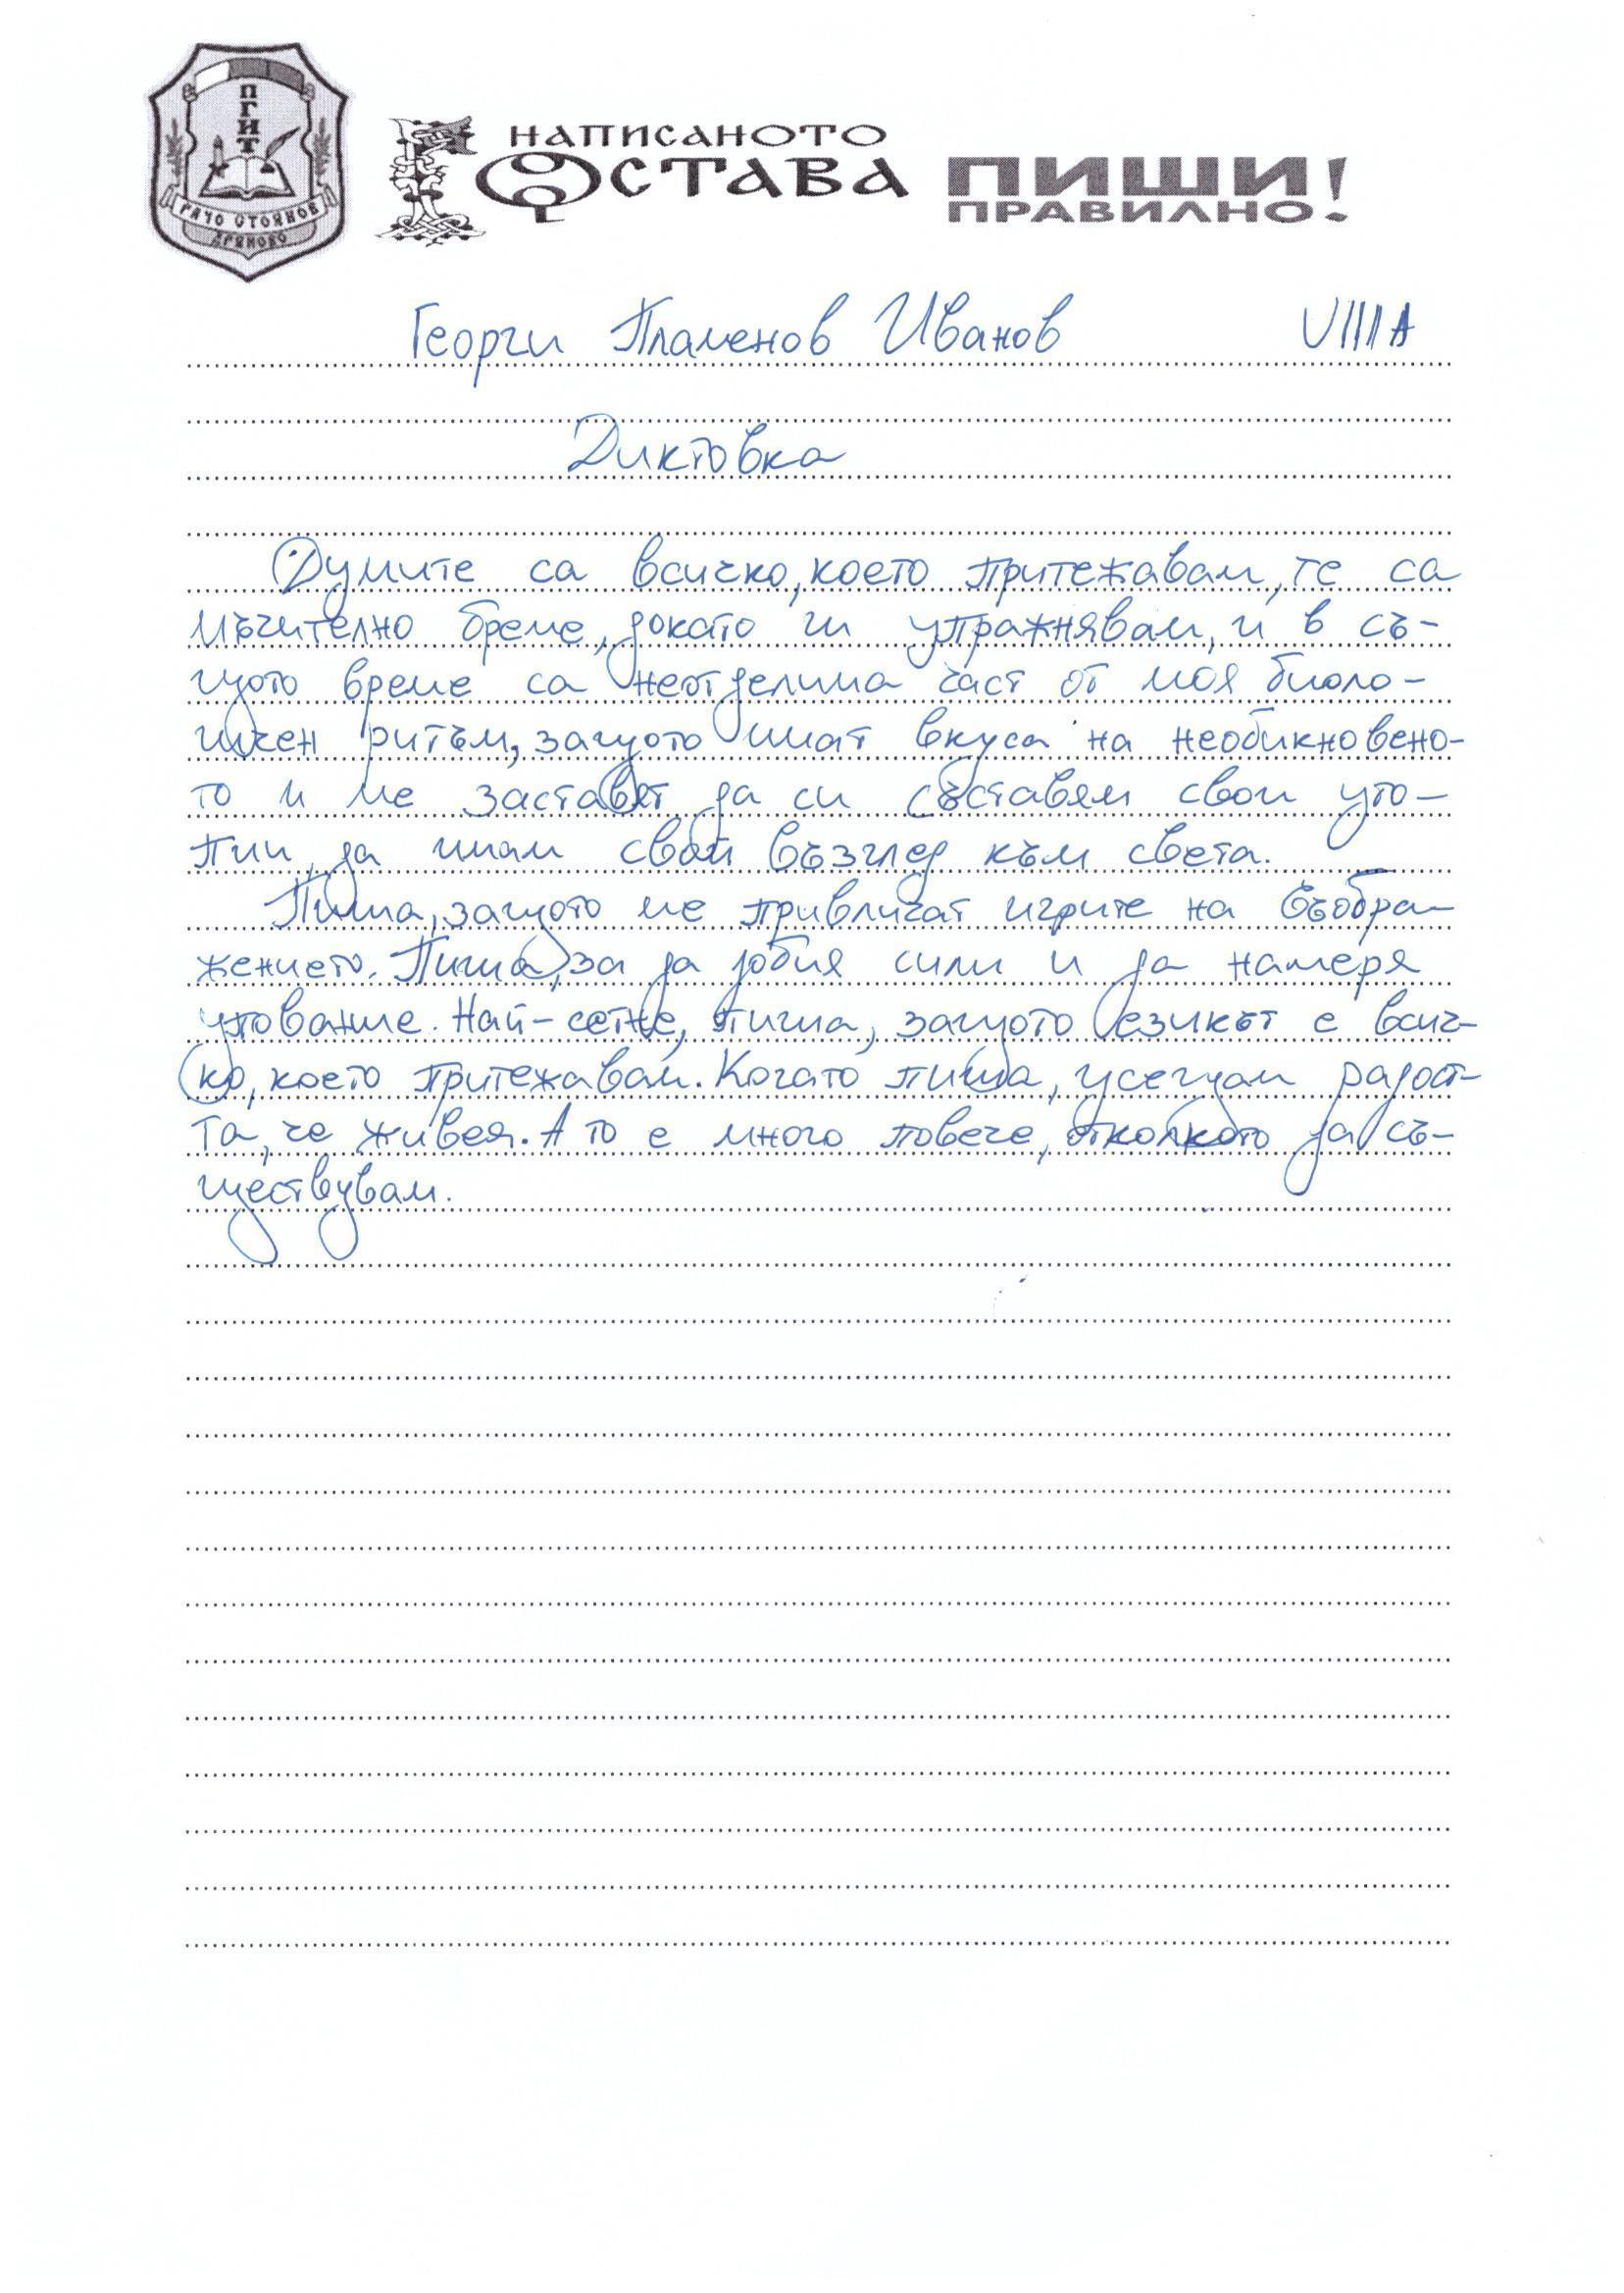 ПГИТ
РАЧО СТОЯНОВ
ДРЯНОВО
НАПИСАНОТО
ОСТАВА
ПИШИ!
ПРАВИЛНО!
Георги Пламенов Иванов VIIIА
Диктовка
Думите са всичко, което притежавам, те са
мъчително бреме, докато ги упражнявам, и в съ-
щото време са неотделима част от моя биоло-
гичен ритъм, защото имат вкуса на необикновено-
то и ме заставят да си съставям свои уто-
пии, да имам свой възглед към света.
Пиша, защото ме привличат игрите на въобра-
жението. Пиша, за да добия сили и да намеря
упование. Най-сетне, пиша, защото езикът е всич-
ко, което притежавам. Когато пиша, усещам радост-
та, че живея. А то е много повече, отколкото да съ-
ществувам.